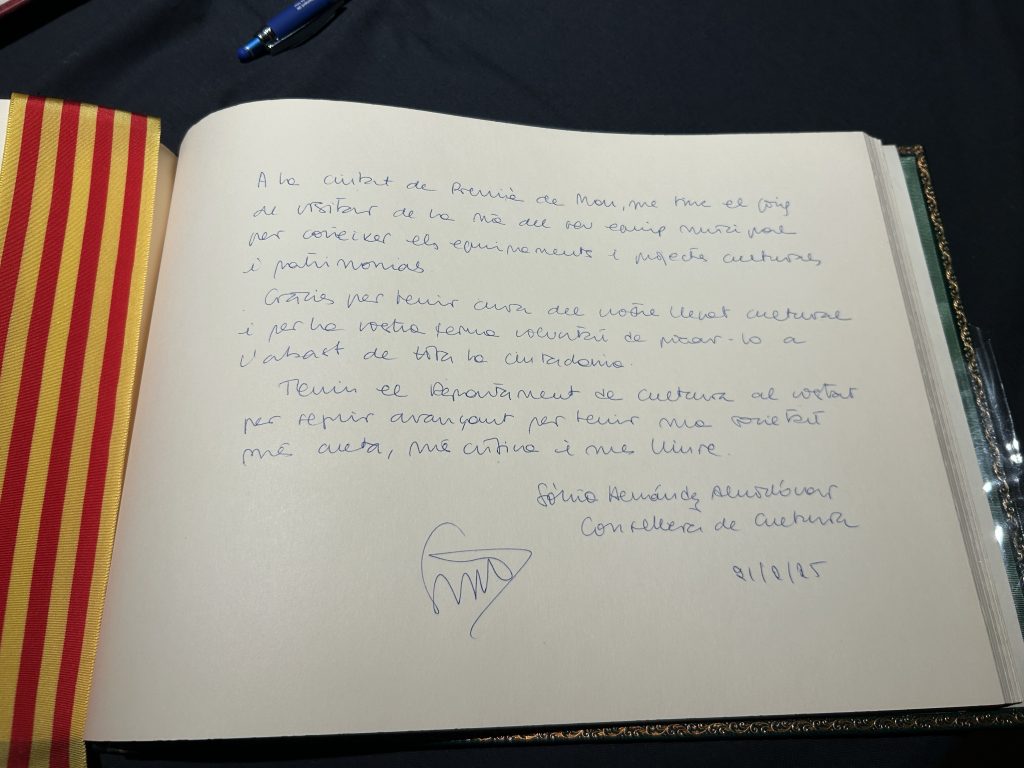 A la ciutat de Premià de Mar, me tinc el goig
de visitar de la mà del seu equip municipal
per conèixer els equipaments i projectes culturals
i patrimonials
Gràcies per tenir cura del nostre llegat cultural
i per la vostra ferma voluntat de posar-lo a
l'abast de tota la ciutadania.
Tenin el Departament de Cultura al costat
per seguir avançant per tenir una societat
més culta, més crítica i més lliure.
Sònia Hernández Almodóvar
Consellera de Cultura
21/2/25